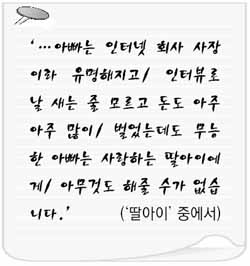 ‘…아빠는 인터넷 회사 사장
이라 유명해지고/ 인터뷰로
날 새는 줄 모르고 돈도 아주
아주 많이/ 벌었는데도 무능
한 아빠는 사랑하는 딸아이에
게/ 아무것도 해줄 수가 없습
니다.’ (‘딸아이’ 중에서)